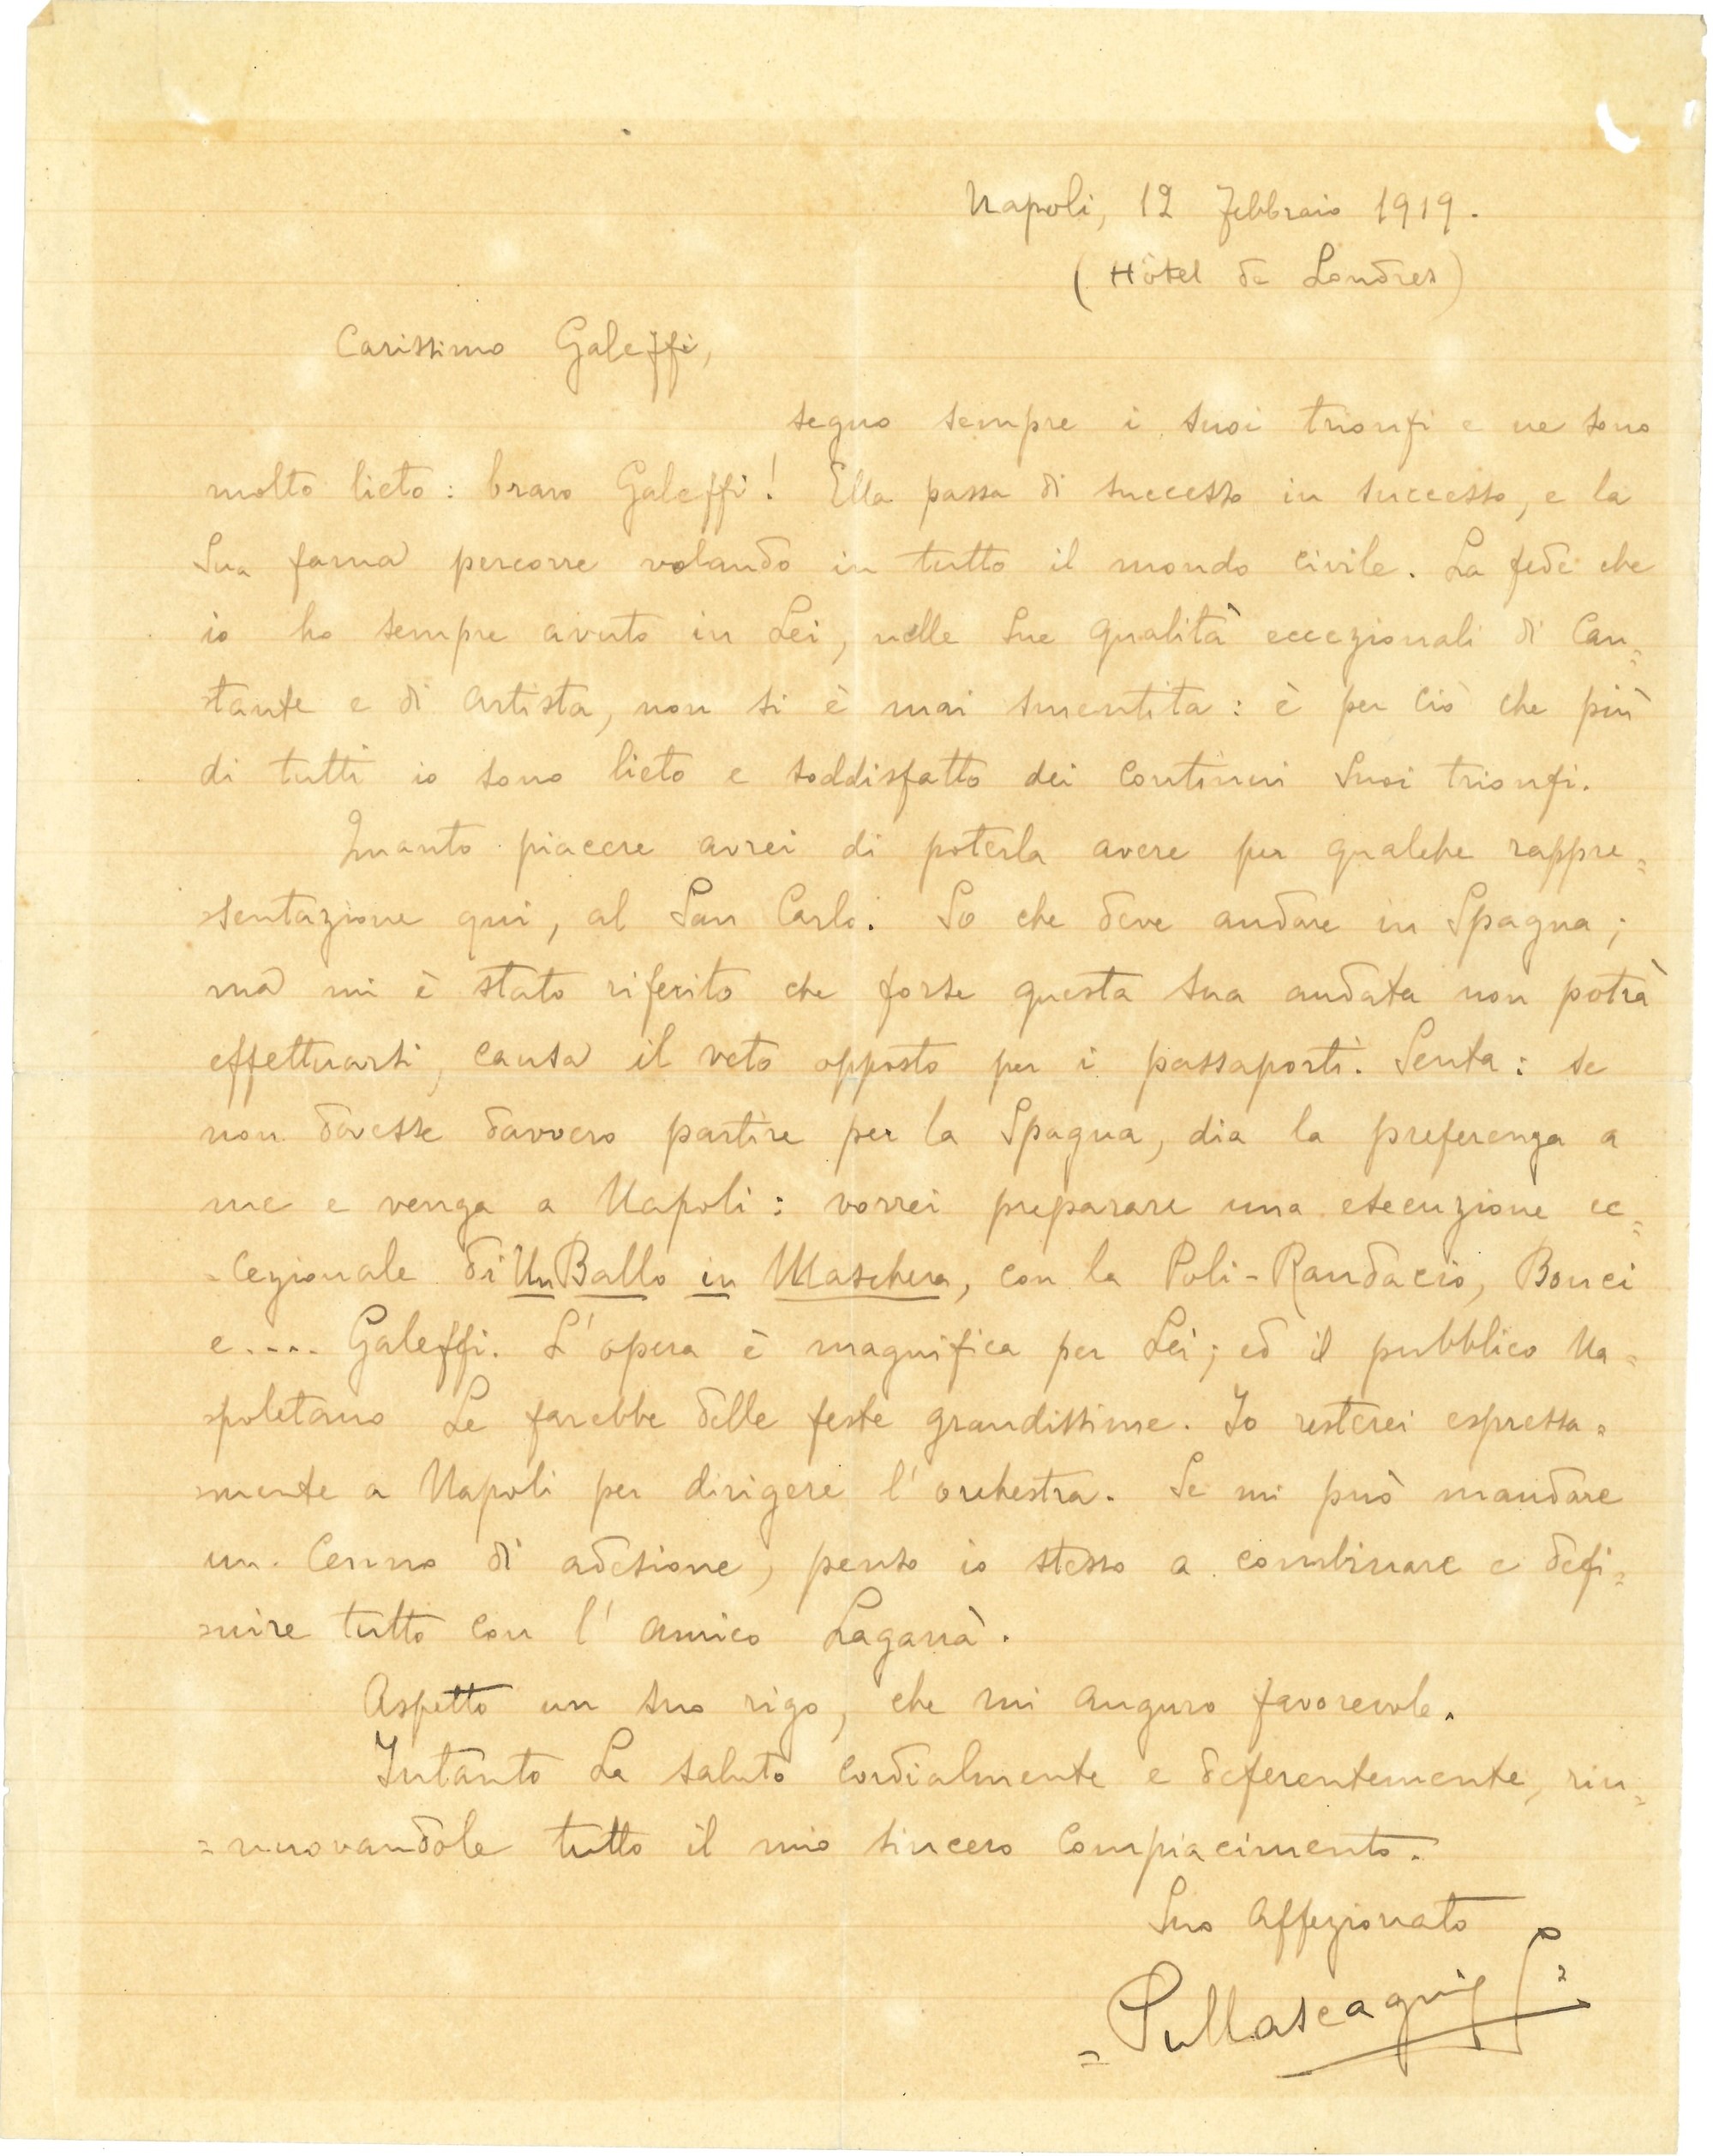 Napoli, 12 Febbraio 1919.
(Hôtel de Londres)
Carissimo Galeffi,
seguo sempre i suoi trionfi e ne sono
molto lieto: bravo Galeffi! Ella passa di successo in successo, e la
Sua fama percorre volando in tutto il mondo civile. La fede che
io ho sempre avuto in Lei, nelle Sue qualità eccezionali di Can=
tante e di artista, non si è mai smentita: è per ciò che più
di tutti io sono lieto e soddisfatto dei continui Suoi trionfi.
Quanto piacere avrei di poterla avere per qualche rappre=
sentazione qui, al San Carlo. So che deve andare in Spagna;
ma mi è stato riferito che forse questa sua andata non potrà
effettuarsi, causa il veto opposto per i passaporti. Senta: se
non dovesse davvero partire per la Spagna, dia la preferenza a
me e venga a Napoli: vorrei preparare una esecuzione ec=
=cezionale di Un Ballo in Maschera, con la Poli-Randacio, Bonci
e.... Galeffi. L'opera è magnifica per Lei; ed il pubblico Na=
poletano Le farebbe delle feste grandissime. Io resterei espressa=
mente a Napoli per dirigere l'orchestra. Se mi può mandare
un cenno di adesione, penso io stesso a combinare e defi=
nire tutto con l'amico Laganà.
Aspetto un suo rigo, che mi auguro favorevole.
Intanto La saluto cordialmente e deferentemente, rin=
=nuovandole tutto il mio sincero compiacimento.
Suo affezionato
=PMascagni=